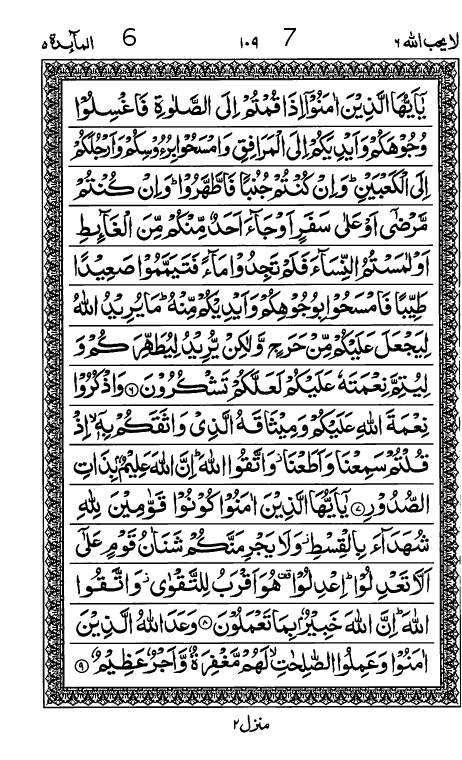 لا یحب الله ٦ 7 ١٠٩ 6 المآئدة ٥
يٰٓاَيُّهَا الَّذِيْنَ اٰمَنُوْٓا اِذَا قُمْتُمْ اِلَى الصَّلٰوةِ فَاغْسِلُوْا
وُجُوْهَكُمْ وَاَيْدِيَكُمْ اِلَى الْمَرَافِقِ وَامْسَحُوْا بِرُءُوْسِكُمْ وَاَرْجُلَكُمْ
اِلَى الْكَعْبَيْنِ ؕ وَاِنْ كُنْتُمْ جُنُبًا فَاطَّهَّرُوْا ؕ وَاِنْ كُنْتُمْ
مَّرْضٰٓى اَوْ عَلٰى سَفَرٍ اَوْ جَآءَ اَحَدٌ مِّنْكُمْ مِّنَ الْغَآئِطِ
اَوْ لٰمَسْتُمُ النِّسَآءَ فَلَمْ تَجِدُوْا مَآءً فَتَيَمَّمُوْا صَعِيْدًا
طَيِّبًا فَامْسَحُوْا بِوُجُوْهِكُمْ وَاَيْدِيْكُمْ مِّنْهُ ؕ مَا يُرِيْدُ اللّٰهُ
لِيَجْعَلَ عَلَيْكُمْ مِّنْ حَرَجٍ وَّلٰكِنْ يُّرِيْدُ لِيُطَهِّرَكُمْ وَ
لِيُتِمَّ نِعْمَتَهٗ عَلَيْكُمْ لَعَلَّكُمْ تَشْكُرُوْنَ ٦ وَاذْكُرُوْا
نِعْمَةَ اللّٰهِ عَلَيْكُمْ وَمِيْثَاقَهُ الَّذِيْ وَاثَقَكُمْ بِهٖٓ ۙ اِذْ
قُلْتُمْ سَمِعْنَا وَاَطَعْنَا ؗ وَاتَّقُوا اللّٰهَ ؕ اِنَّ اللّٰهَ عَلِيْمٌۢ بِذَاتِ
الصُّدُوْرِ ٧ يٰٓاَيُّهَا الَّذِيْنَ اٰمَنُوْا كُوْنُوْا قَوّٰمِيْنَ لِلّٰهِ
شُهَدَآءَ بِالْقِسْطِ ؗ وَلَا يَجْرِمَنَّكُمْ شَنَاٰنُ قَوْمٍ عَلٰٓى
اَلَّا تَعْدِلُوْا ؕ اِعْدِلُوْا ۫ هُوَ اَقْرَبُ لِلتَّقْوٰى ؗ وَاتَّقُوا
اللّٰهَ ؕ اِنَّ اللّٰهَ خَبِيْرٌۢ بِمَا تَعْمَلُوْنَ ٨ وَعَدَ اللّٰهُ الَّذِيْنَ
اٰمَنُوْا وَعَمِلُوا الصّٰلِحٰتِ ۙ لَهُمْ مَّغْفِرَةٌ وَّاَجْرٌ عَظِيْمٌ ٩
منزل ٢